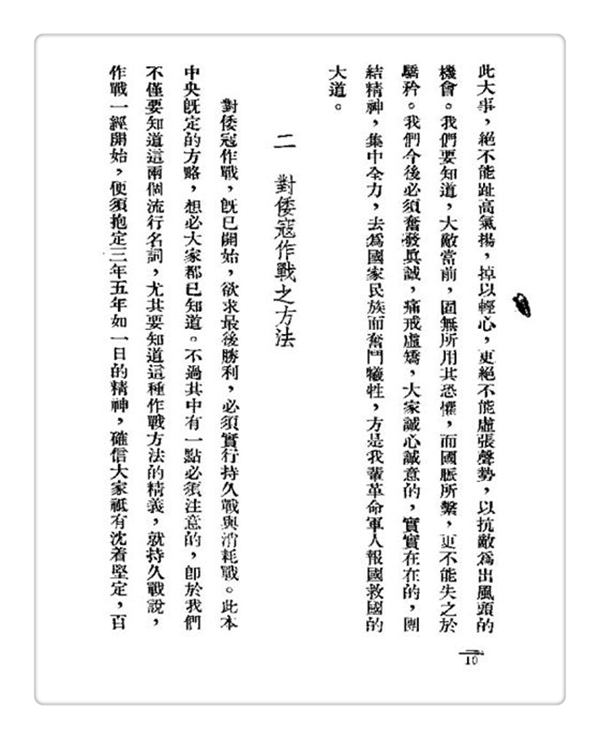 此大事，絕不能趾高氣揚，掉以輕心，更絕不能虛張聲勢，以抗敵爲出風頭的
機會。我們要知道，大敵當前，固無所用其恐懼，而國脹所繫，更不能失之於
驕矜。我們今後必須奮發眞誠，痛戒虛矯，大家誠心誠意的，實實在在的，團
結精神，集中全力，去爲國家民族而奮鬥犧牲，方是我輩革命軍人報國救國的
大道。
二　對倭寇作戰之方法
對倭寇作戰，旣已開始，欲求最後勝利，必須實行持久戰與消耗戰。此本
中央旣定的方略，想必大家都已知道。不過其中有一點必須注意的，卽於我們
不僅要知道這兩個流行名詞，尤其要知道這種作戰方法的精義，就持久戰說，
作戰一經開始，便須抱定三年五年如一日的精神，確信大家祇有沈着堅定，百
10